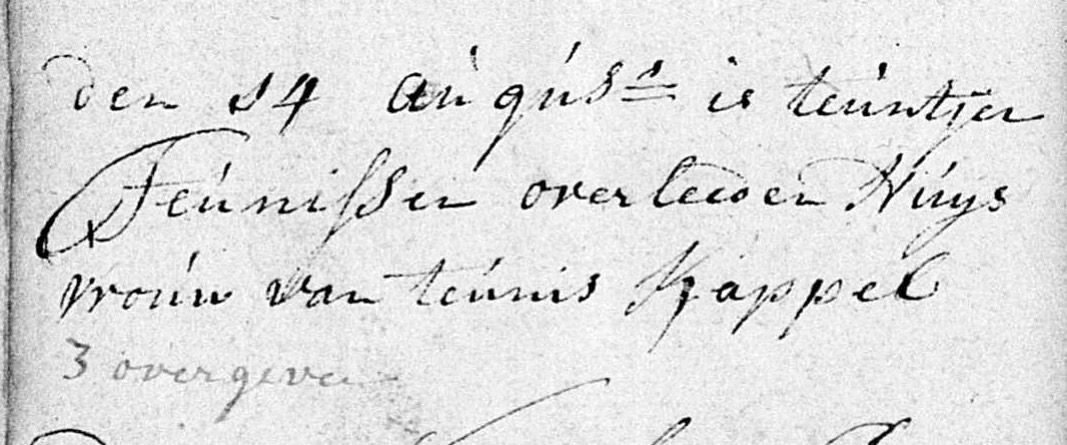 den 14 augús:t is teúntjen
Teúnissen overleeden Húijs
vroúw van teúnis Kappel
3 overgeven